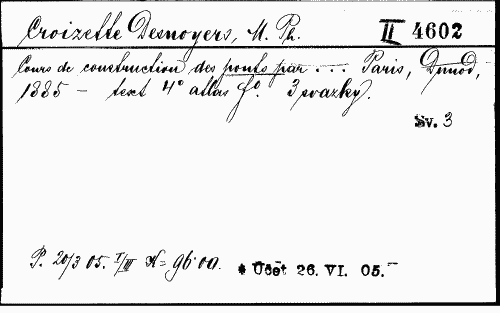 Croizette Desnoyers, M. Ph. II 4602
Cours de construction des ponts par ... Paris, Dunod,
1885 - text 4° atlas f°. 3 svazky.
Sv. 3
P. 20/3 05. I/III K = 96·00. * Účet 26. VI. 05.-